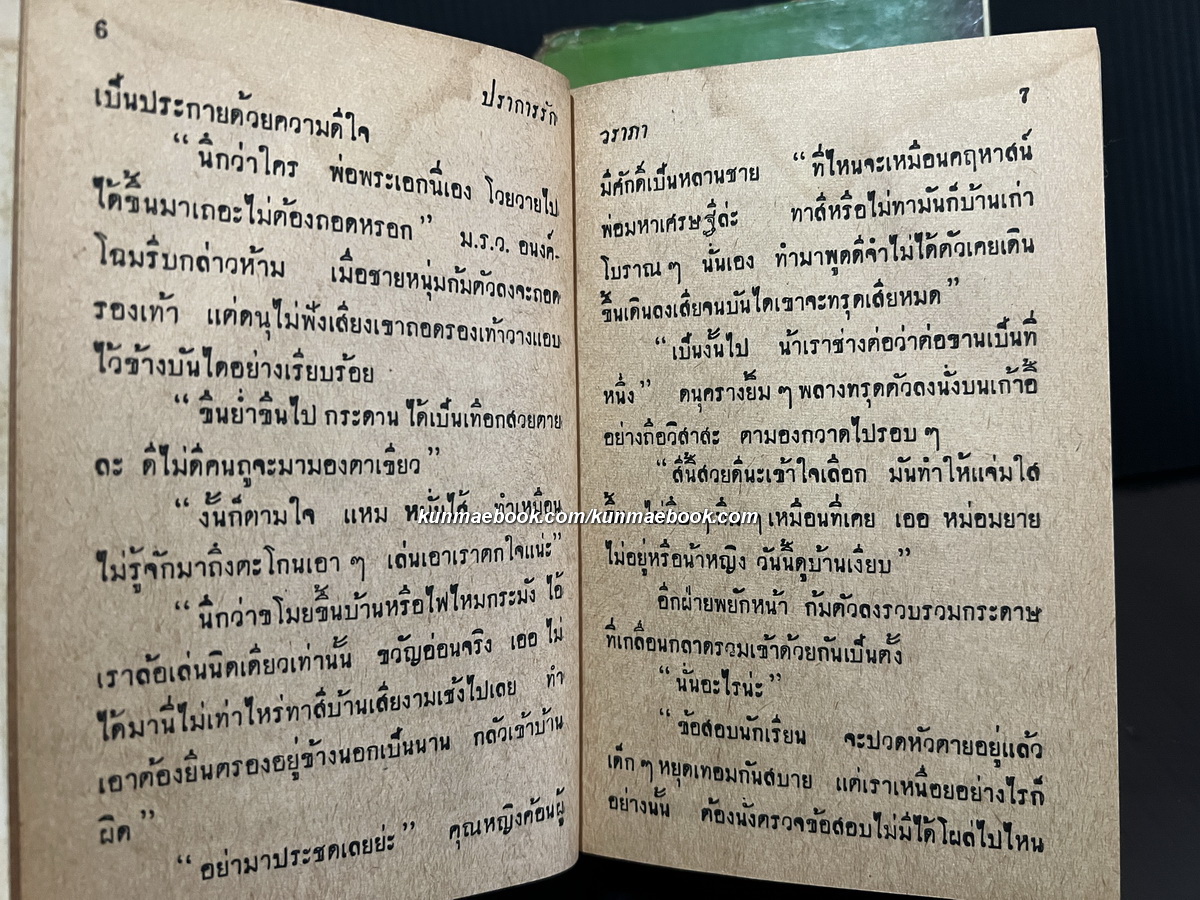 6
ปราการรัก
เป็นประกายด้วยความดีใจ
“นึกว่าใคร พ่อพระเอกนี่เอง โวยวายไป
ได้ขึ้นมาเถอะไม่ต้องถอดหรอก” ม.ร.ว. อนงค์-
โฉมรีบกล่าวห้าม เมื่อชายหนุ่มก้มตัวลงจะถอด
รองเท้า แต่ดนุไม่ฟังเสียงเขาถอดรองเท้าวางแอบ
ไว้ข้างบันไดอย่างเรียบร้อย
“ขืนย่ำขึ้นไป กระดานได้เป็นเทือกสวยตาย
ละ ดีไม่ดีคนถูจะมามองตาเขียว”
“งั้นก็ตามใจ แหม หมั่นไส้ ทำเหมือน
ไม่รู้จักมาถึงตะโกนเอา ๆ เล่นเอาเราตกใจแน่ะ”
“นึกว่าขโมยขึ้นบ้านหรือไฟไหม้กระมัง ไอ้
เราล้อเล่นนิดเดียวเท่านั้น ขวัญอ่อนจริง เออ ไม่
ได้มานี่ไม่เท่าไหร่ทาสีบ้านเสียงามเช้งไปเลย ทำ
เอาต้องยืนตรองอยู่ข้างนอกเป็นนาน กลัวเข้าบ้าน
ผิด”
“อย่ามาประชดเลยย่ะ” คุณหญิงค้อนผู้
7
วราภา
มีศักดิ์เป็นหลานชาย “ที่ไหนจะเหมือนคฤหาสน์
พ่อมหาเศรษฐีล่ะ ทาสีหรือไม่ทามันก็บ้านเก่า
โบราณ ๆ นั่นเอง ทำมาพูดดีจำไม่ได้ตัวเคยเดิน
ขึ้นเดินลงเสียจนบันไดเขาจะทรุดเสียหมด”
“เป็นงั้นไป น้าเราช่างต่อว่าต่อขานเป็นที่
หนึ่ง” ดนุครางยิ้ม ๆ พลางทรุดตัวลงนั่งบนเก้าอี้
อย่างถือวิสาสะ ตามองกวาดไปรอบ ๆ
“สีนี้สวยดีนะเข้าใจเลือก มันทำให้แจ่มใส
ๆ เหมือนที่เคย เออ หม่อมยาย
ไม่อยู่หรือน้าหญิง วันนี้ดูบ้านเงียบ”
อีกฝ่ายพยักหน้า ก้มตัวลงรวบรวมกระดาษ
ที่เกลื่อนกลาดรวมเข้าด้วยกันเป็นตั้ง
“นั่นอะไรน่ะ”
“ข้อสอบนักเรียน จะปวดหัวตายอยู่แล้ว
เด็ก ๆ หยุดเทอมกันสบาย แต่เราเหนื่อยอย่างไรก็
อย่างนั้น ต้องนั่งตรวจข้อสอบไม่มีได้โผล่ไปไหน
kunmaebook.com/kunmaebook.com